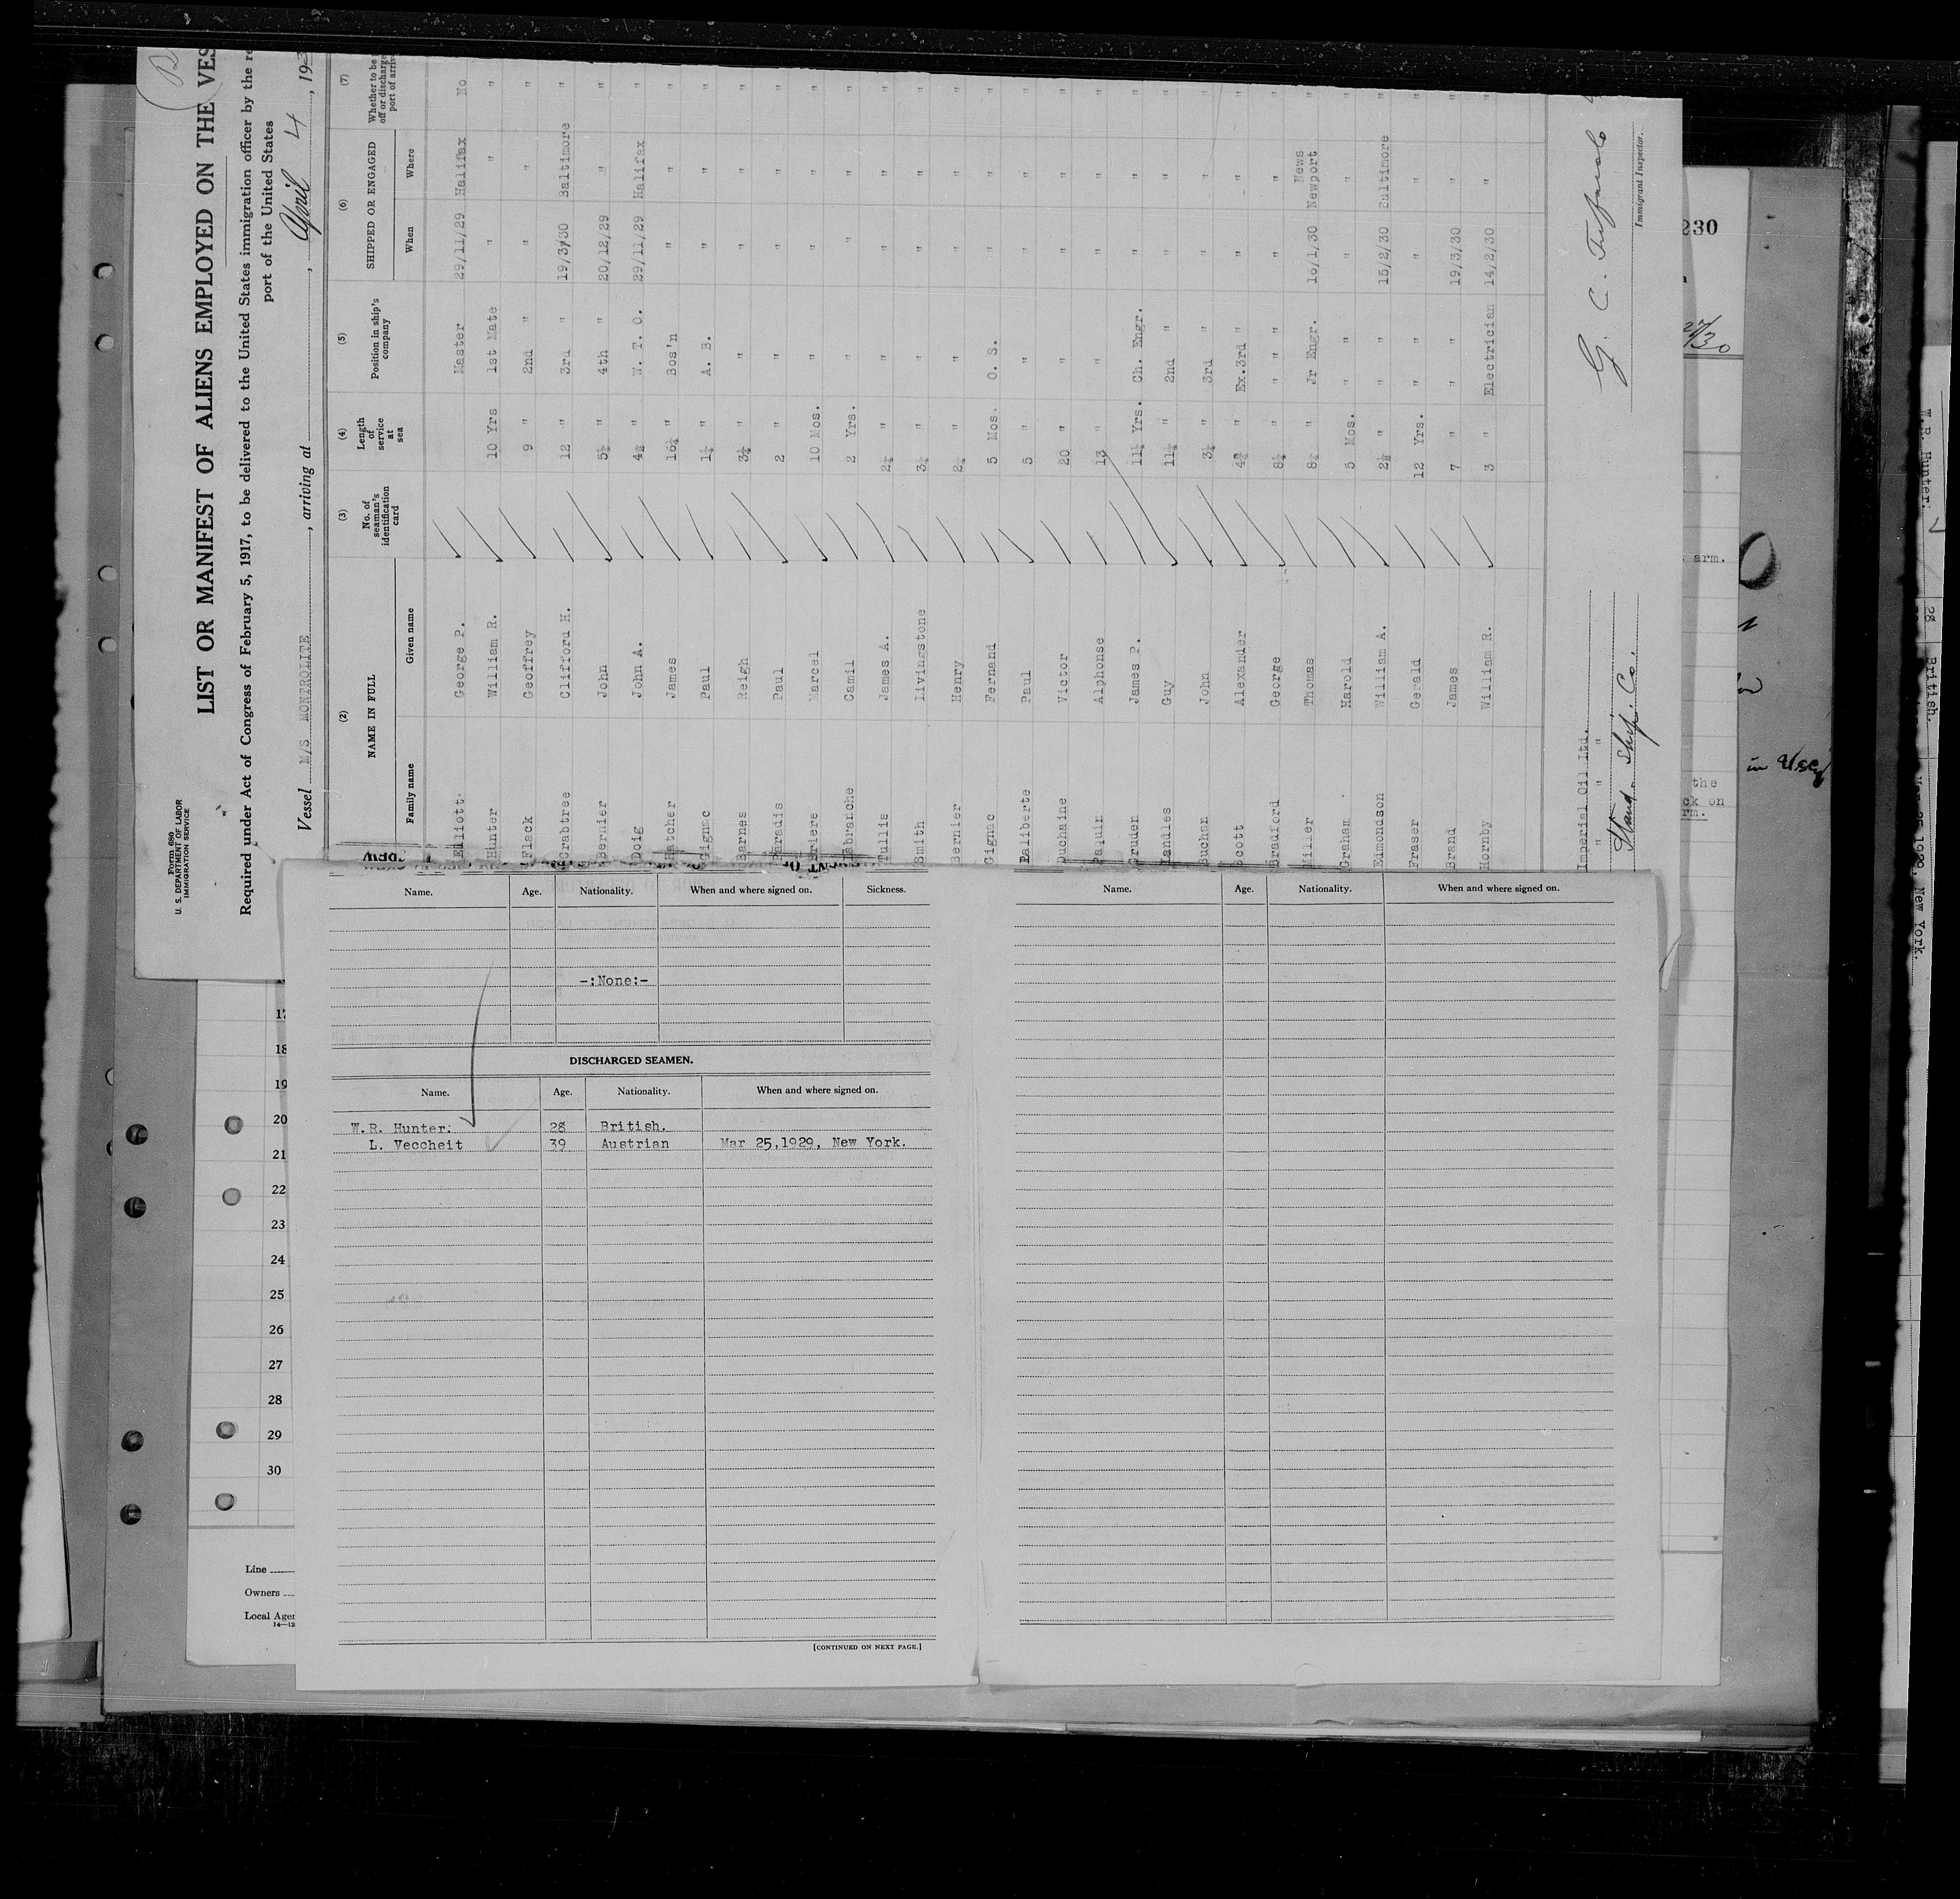 Form 680
U. S. DEPARTMENT OF LABOR
IMMIGRATION SERVICE
LIST OR MANIFEST OF ALIENS EMPLOYED ON THE VES
Required under Act of Congress of February 5, 1917, to be delivered to the United States immigration officer by the re
port of the United States
Vessel M/S MONTROLITE, arriving at , April 4, 193
(2) (3) (4) (5) (6) (7)
NAME IN FULL No. of seaman's identification card Length of service at sea Position in ship's company SHIPPED OR ENGAGED Whether to be off or discharge port of arriv
Family name Given name When Where
Elliott George P. Master 29/11/29 Halifax No
Hunter William R. 10 Yrs 1st Mate " " "
Flack Geoffrey 9 " 2nd " " " "
Crabtree Clifford H. 12 " 3rd " 19/3/30 Baltimore "
Bernier John 5½ " 4th " 20/12/29 " "
Doig John A. 4½ " W. T. O. 29/11/29 Halifax "
Hatcher James 16¼ " Bos'n " " "
Gignac Paul 1¼ " A. B. " " "
Barnes Reigh 3¼ " " " " "
Paradis Paul 2 " " " " "
Briere Marcel 10 Mos. " " " "
Labranche Camil 2 Yrs. " " " "
Tullis James A. 2¼ " " " " "
Smith Livingstone 3¼ " " " " "
Bernier Henry 2¼ " " " " "
Gignac Fernand 5 Mos. O. S. " " "
Laliberte Paul 5 " " " " "
Duchaine Victor 20 " " " " "
Alphonse 13 " " " " "
Cruden James P. 11¼ Yrs. Ch. Engr. " " "
Landles Guy 11¼ " 2nd " " " "
Buchan John 3¼ " 3rd " " " "
Scott Alexander 4¾ " Ex.3rd " " " "
Bradford George 8¼ " " " " " "
News
Miller Thomas 8¼ " Jr Engr. 16/1/30 Newport "
Graham Harold 5 Mos. " " " " "
Edmondson William A. 2½ " " " 15/2/30 Baltimore "
Fraser Gerald 12 Yrs. " " " " "
Brand James 7 " " " 19/3/30 " "
Hornby William R. 3 " Electrician 14/2/30 " "
Imperial Oil Ltd.
" " "
Stand. Ship. Co.
G. C.
Immigrant Inspector.
Name. Age. Nationality. When and where signed on. Sickness.
-:None:-
DISCHARGED SEAMEN.
Name. Age. Nationality. When and where signed on.
W.R. Hunter. 28 British.
L. Veccheit 39 Austrian Mar 25,1929, New York.
[CONTINUED ON NEXT PAGE.]
Name. Age. Nationality. When and where signed on.
17
18
19
20
21
22
23
24
25
26
27
28
29
30
Line
Owners
Local Agen
14—12
230
27/30
arm.
the
ck on
rm.
in use
W.R. Hunter. 28 British.
New York.